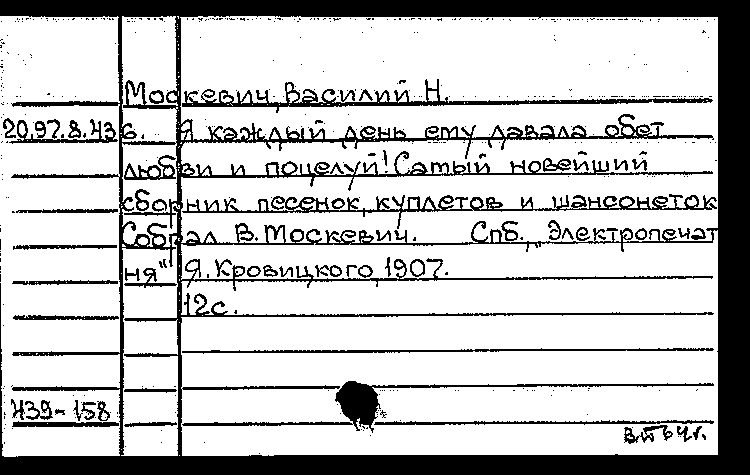 Москевич, Василий Н.
20.97.8.436. Я каждый день ему давала обет
любви и поцелуй! Самый новейший
сборник песенок, куплетов и шансонеток
Собрал В. Москевич. Спб., „Электропечат
ня" Я. Кровицкого, 1907.
12с.
439-158